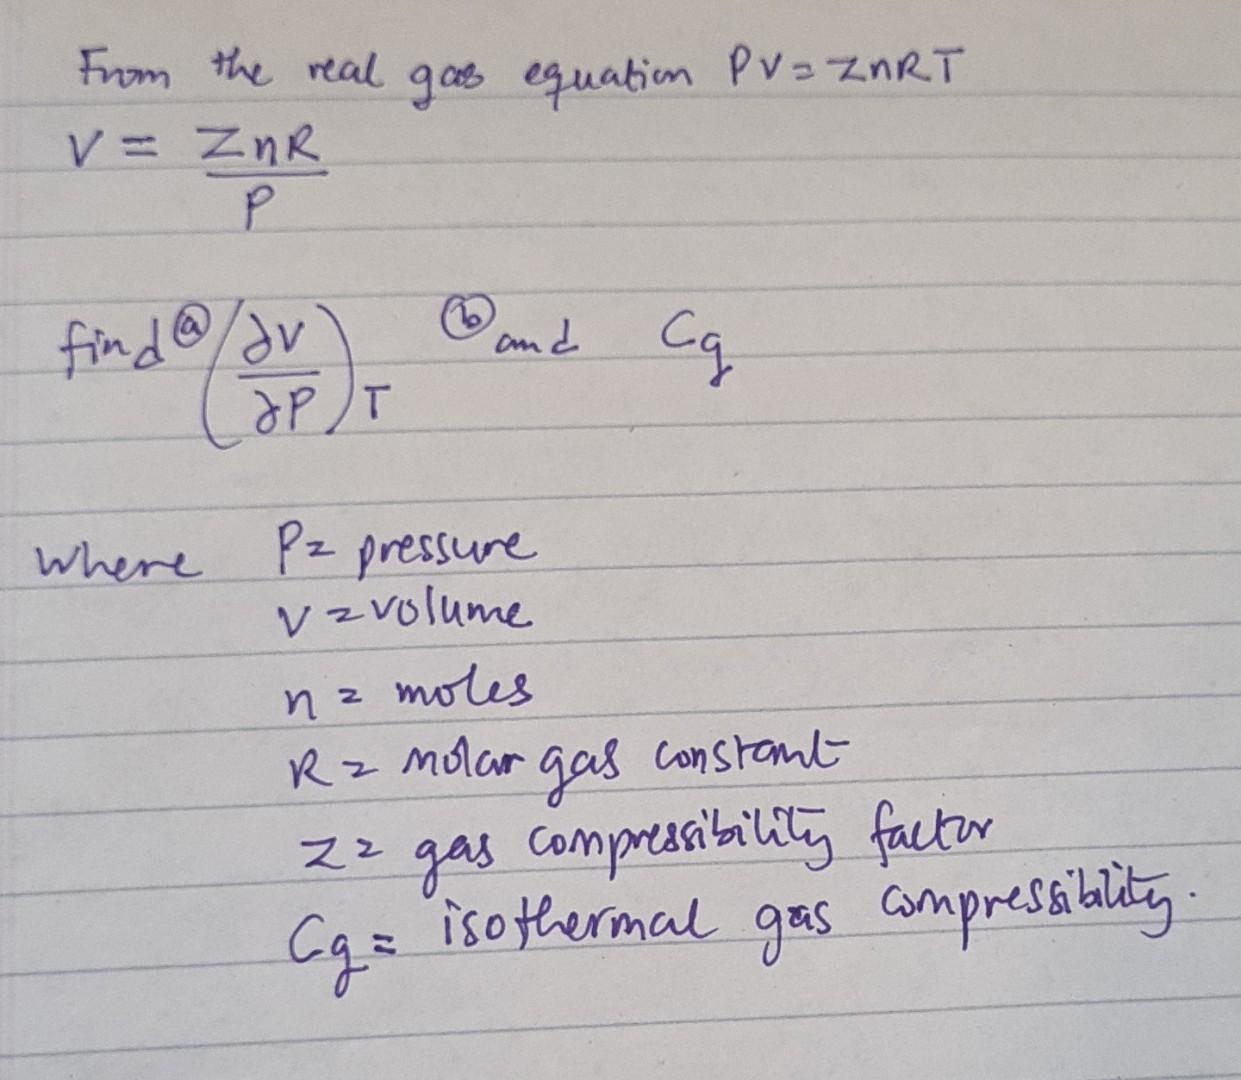 From the real gas equation PV = ZnRT
V = ZnR
P
find ⓐ (∂V/∂P)T ⓑ and Cg
where P = pressure
V = volume
n = moles
R = molar gas constant
Z = gas compressibility factor
Cg = isothermal gas compressibility.